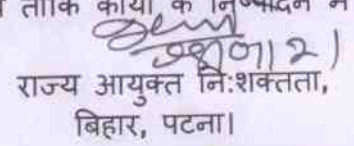 ताकि कार्यो के निष्पादन में
राज्य आयुक्त नि:शक्तता,
बिहार, पटना।